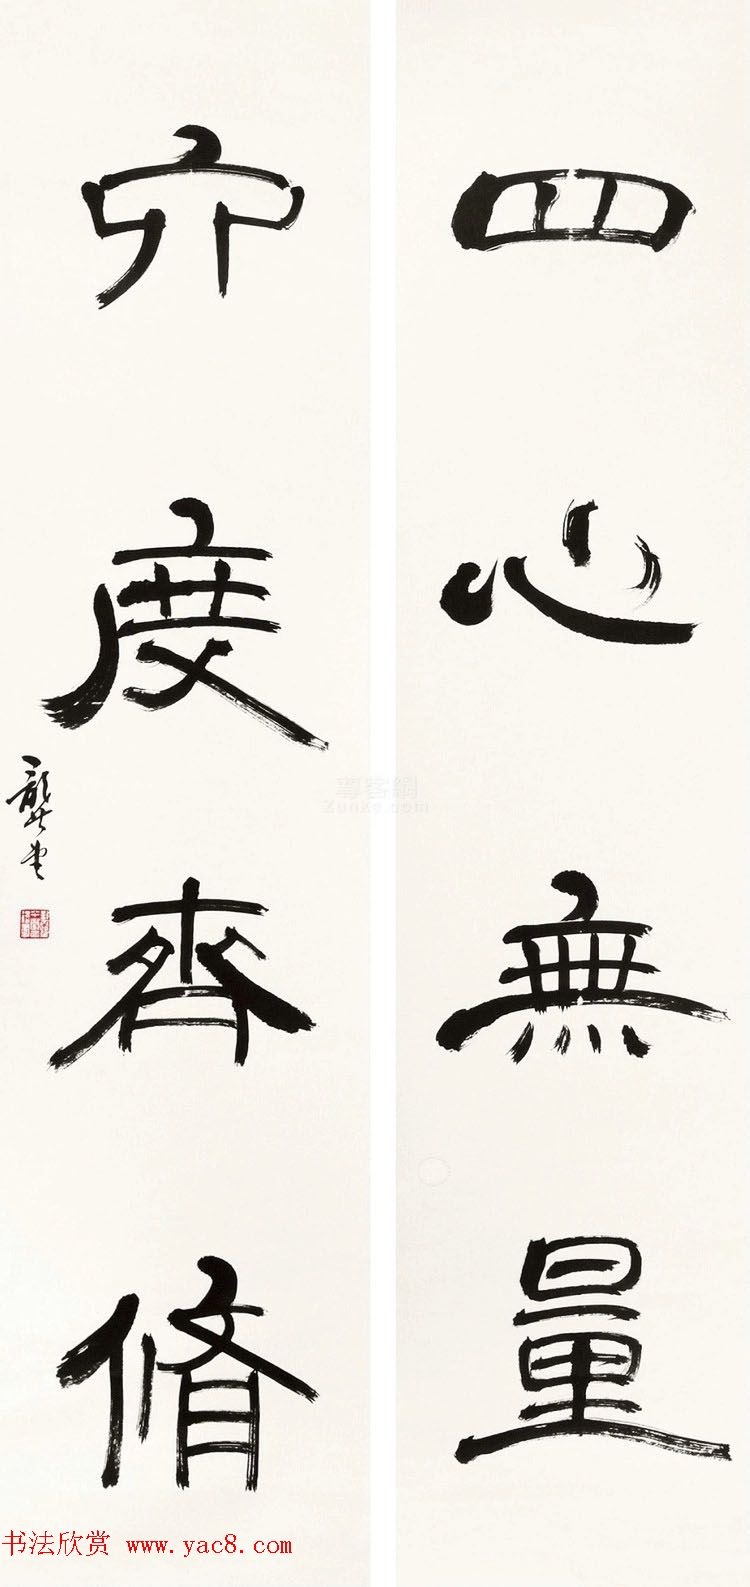 四心無量
六度齊脩
龔望
尊客網
Zunke.com
书法欣赏 www.yac8.com